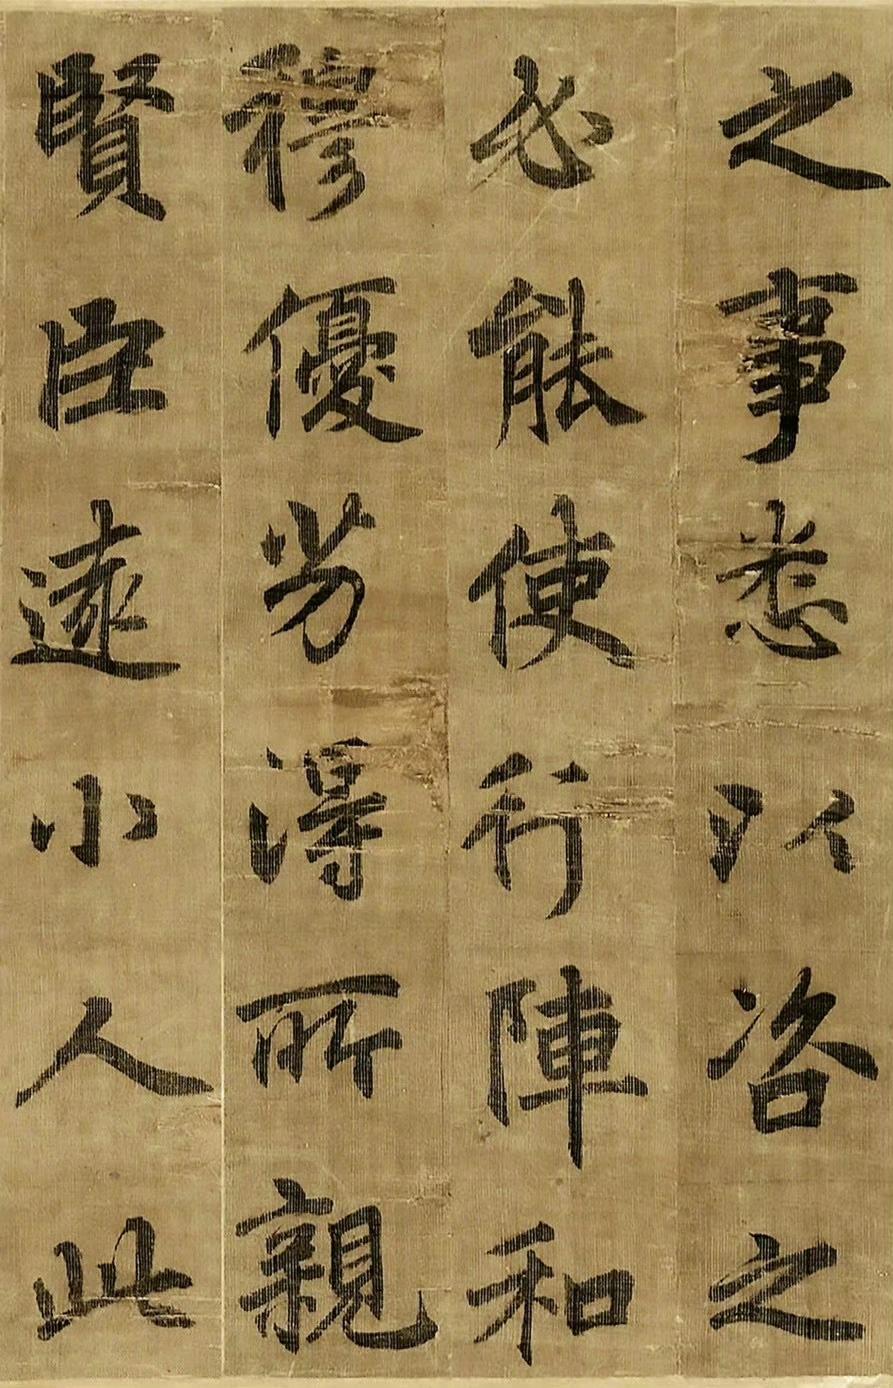 之事悉以咨之
必能使行陣和
穆優劣得所親
賢臣遠小人此